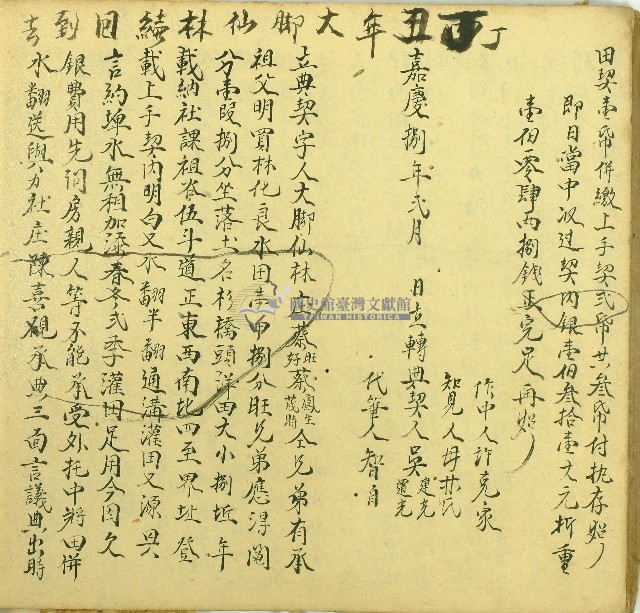 田契壹帋併繳上手契弍帋共叁帋付执存炤
即日當中収过契內銀壹伯叁拾壹大元折重
壹伯零肆両捌錢正完足再炤
作中人許克家
知見人母
嘉慶捌年弍月 日立轉典契人吳建光
代筆人智自
丁丑年大脚仙林續回到去
立典契字人大脚仙林旺蔡旺好蔡鳳生茂時仝兄弟有承
祖父明買林化良水田壹甲捌分旺兄弟應得鬮
分壹叚捌分坐落土名杉橋頭洋田大小捌坵年
載納社課租谷伍斗道正東西南北四至界址登
載上手契內明白又水翻半翻通溝灌田又源
言約埤水無相加添春冬弍季灌田足用今因欠
銀費用先問房親人等不能承受外托中將田併
水翻送與方社庄陳喜觀承典三面言議典出時
國史館臺灣文獻館
TAIWAN HISTORICA